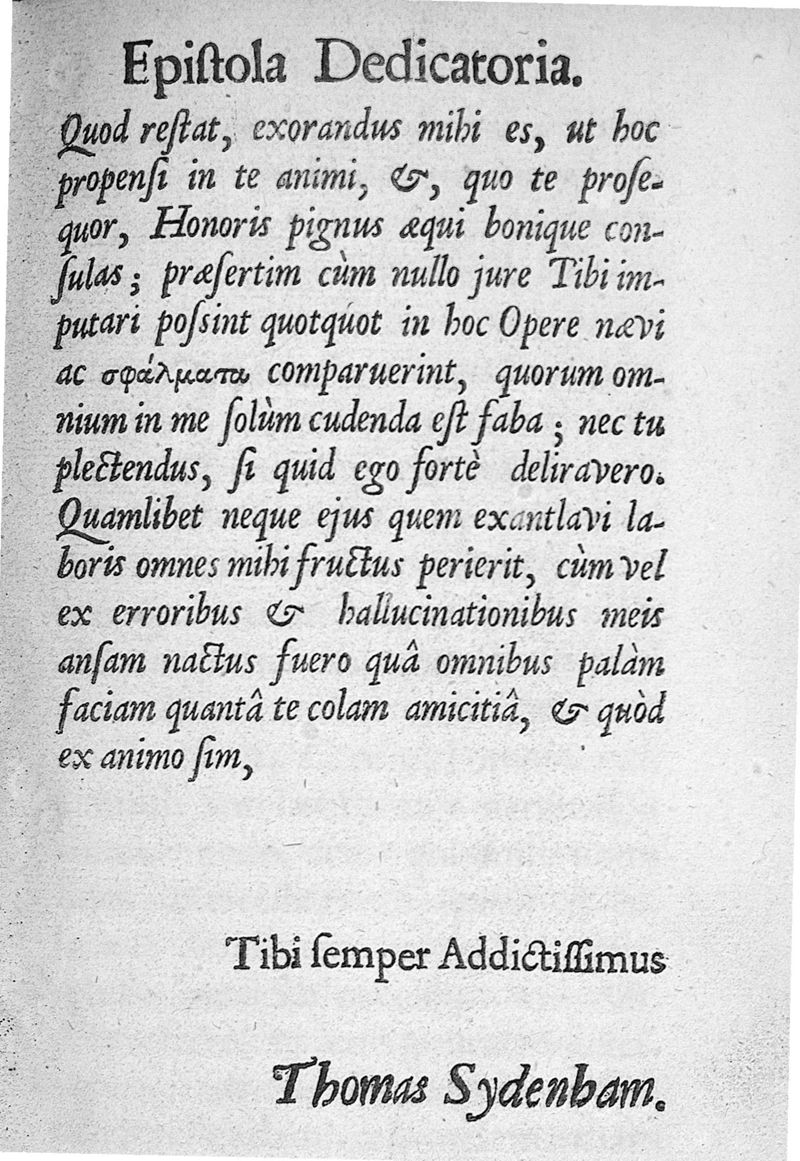 Epiſtola Dedicatoria.
Quod reſtat, exorandus mihi es, ut hoc
propenſi in te animi, &, quo te proſe-
quor, Honoris pignus æqui bonique con-
ſulas; præſertim cùm nullo jure Tibi im-
putari poſsint quotquot in hoc Opere nævi
ac σφάλματα comparuerint, quorum om-
nium in me ſolùm cudenda eſt faba; nec tu
plectendus, ſi quid ego fortè deliravero.
Quamlibet neque ejus quem exantlavi la-
boris omnes mihi fructus perierit, cùm vel
ex erroribus & hallucinationibus meis
anſam nactus fuero quâ omnibus palàm
faciam quantâ te colam amicitiâ, & quòd
ex animo ſim,
Tibi ſemper Addictiſſimus
Thomas Sydenham.